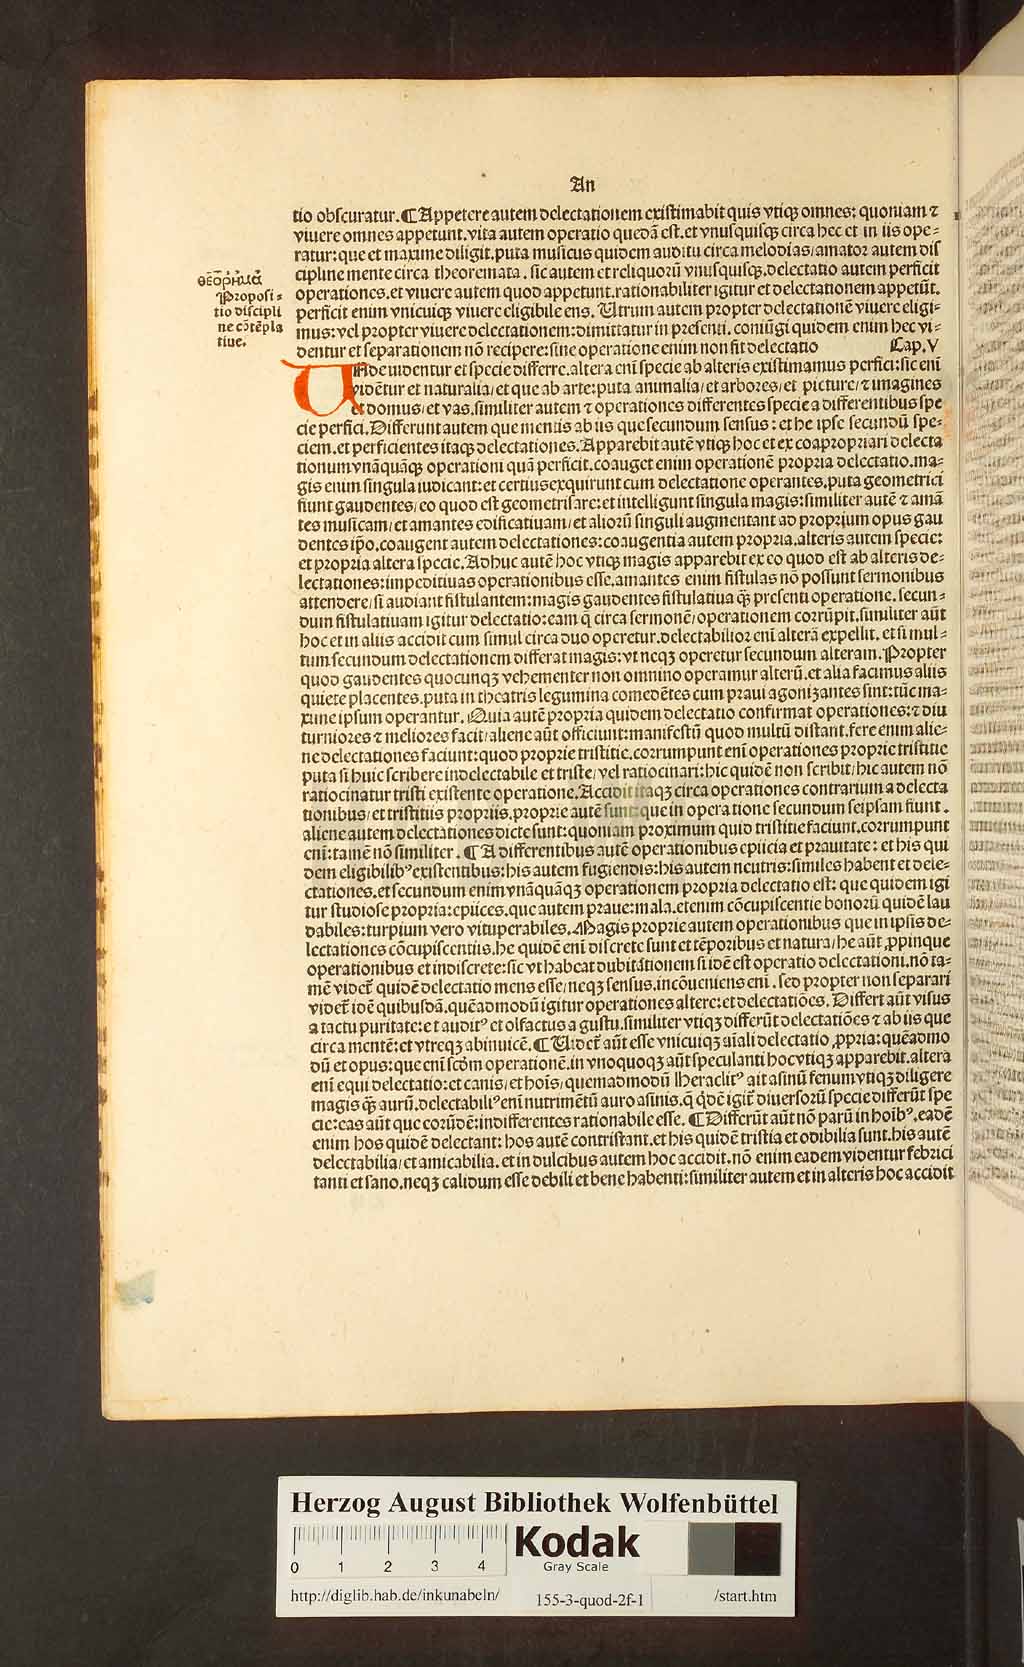 An
tio obscuratur. ¶ Appetere autem delectationem existimabit quis vtiqꝫ omnes: quoniam ⁊
viuere omnes appetunt. vita autem operatio quedā est. et vnusquisqꝫ circa hec et in iis ope⸗
ratur: que et maxime diligit. puta musicus quidem auditu circa melodias/ amator autem dis
cipline mente circa theoremata. sic autem et reliquorū vnusquisqꝫ. delectatio autem perficit
operationes. et viuere autem quod appetunt. rationabiliter igitur et delectationem appetūt.
perficit enim vnicuiqꝫ viuere eligibile ens. Utrum autem propter delectationē viuere eligi⸗
mus: vel propter viuere delectationem: dimittatur in presenti. coniūgi quidem enim hec vi⸗
dentur et separationem nō recipere: sine operatione enim non fit delectatio Cap. V
θεορήματα
Proposi⸗
tio discipli
ne cōtēpla
tiue.
UNde videntur et specie differre. altera eni specie ab alteris existimamus perfici: sic eni
vidētur et naturalia/ et que ab arte: puta animalia/ et arbores/ et picture/ ⁊ imagines
et domus/ et vas. similiter autem ⁊ operationes differentes specie a differentibus spe
cie perfici. Differunt autem que mentis ab iis que secundum sensus: et he ipse secundū spe⸗
ciem. et perficientes itaqꝫ delectationes. Apparebit autē vtiqꝫ hoc et ex coapropriari delecta
tionum vnāquāqꝫ operationi quā perficit. coauget enim operationē propria delectatio. ma⸗
gis enim singula iudicant: et certius exquirunt cum delectatione operantes. puta geometrici
fiunt gaudentes/ eo quod est geometrisare: et intelligunt singula magis: similiter autē ⁊ amā
tes musicam/ et amantes edificatiuam/ et aliorū singuli augmentant ad proprium opus gau
dentes ip̄o. coaugent autem delectationes: coaugentia autem propria. alteris autem specie:
et propria altera specie. Adhuc autē hoc vtiqꝫ magis apparebit ex eo quod est ab alteris de⸗
lectationes: impeditiuas operationibus esse. amantes enim fistulas nō possunt sermonibus
attendere/ si audiant fistulantem: magis gaudentes fistulatiua qꝫ presenti operatione. secun⸗
dum fistulatiuam igitur delectatio: eam q̄ circa sermonē/ operationem corrūpit. similiter aūt
hoc et in aliis accidit cum simul circa duo operetur. delectabilior enī alterā expellit. et si mul⸗
tum secundum delectationem differat magis: vt neqꝫ operetur secundum alteram. Propter
quod gaudentes quocunqꝫ vehementer non omnino operamur alterū. et alia facimus aliis
quiete placentes. puta in theatris legumina comedētes cum praui agonizantes sint: tūc ma⸗
xime ipsum operantur. Quia autē propria quidem delectatio confirmat operationes: ⁊ diu
turniores ⁊ meliores facit/ aliene aūt officiunt: manifestū quod multū distant. fere enim alie⸗
ne delectationes faciunt: quod proprie tristitie. corrumpunt enī operationes proprie tristitie
puta si huic scribere indelectabile et triste/ vel ratiocinari: hic quidē non scribit/ hic autem nō
ratiocinatur tristi existente operatione. Accidit itaqꝫ circa operationes contrarium a delecta
tionibus/ et tristitiis propriis. proprie autē sunt: que in operatione secundum seipsam fiunt.
aliene autem delectationes dicte sunt: quoniam proximum quid tristitie faciunt. corrumpunt
enī: tamē nō similiter. ¶ A differentibus autē operationibus epiicia et prauitate: et his qui
dem eligibilibꝰ existentibus: his autem fugiendis: his autem neutris: similes habent et dele⸗
ctationes. et secundum enim vnāquāqꝫ operationem propria delectatio est: que quidem igi
tur studiose propria: epiices. que autem praue: mala. etenim cōcupiscentie bonorū quidē lau
dabiles: turpium vero vituperabiles. Magis proprie autem operationibus que in ipsis de⸗
lectationes cōcupiscentiis. he quidē enī discrete sunt et tēporibus et natura/ he aūt ꝓpinque
operationibus et indiscrete: sic vt habeat dubitātionem si idē est operatio delectationi. nō ta⸗
mē videt̄ quidē delectatio mens esse/ neqꝫ sensus. incōueniens enī. sed propter non separari
videt̄ idē quibusdā. quēadmodū igitur operationes altere: et delectatiōes. Differt aūt visus
a tactu puritate: et auditꝰ et olfactus a gustu. similiter vtiqꝫ differūt delectatiōes ⁊ ab iis que
circa mentē: et vtreqꝫ abinuicē. ¶ Uidet̄ aūt esse vnicuiqꝫ aīali delectatio ꝓpria: quēadmo
dū et opus: que enī scd̄m operationē. in vnoquoqꝫ aūt speculanti hoc vtiqꝫ apparebit. altera
enī equi delectatio: et canis/ et hoīs/ quemadmodū Heraclitꝰ ait asinū fenum vtiqꝫ diligere
magis qꝫ aurū. delectabiliꝰ enī nutrimētū auro asinis. q̄ q̇dē igit̄ diuersorū specie differūt spe
cie: eas aūt que eorūdē: indifferentes rationabile esse. ¶ Differūt aūt nō parū in hoībꝰ. eadē
enim hos quidē delectant: hos autē contristant. et his quidē tristia et odibilia sunt. his autē
delectabilia/ et amicabilia. et in dulcibus autem hoc accidit. nō enim eadem videntur febrici
tanti et sano. neqꝫ calidum esse debili et bene habenti: similiter autem et in alteris hoc accidit
Herzog August Bibliothek Wolfenbüttel
0 1 2 3 4
Kodak
Gray Scale
http://diglib.hab.de/inkunabeln/ 155-3-quod-2f-1 /start.htm